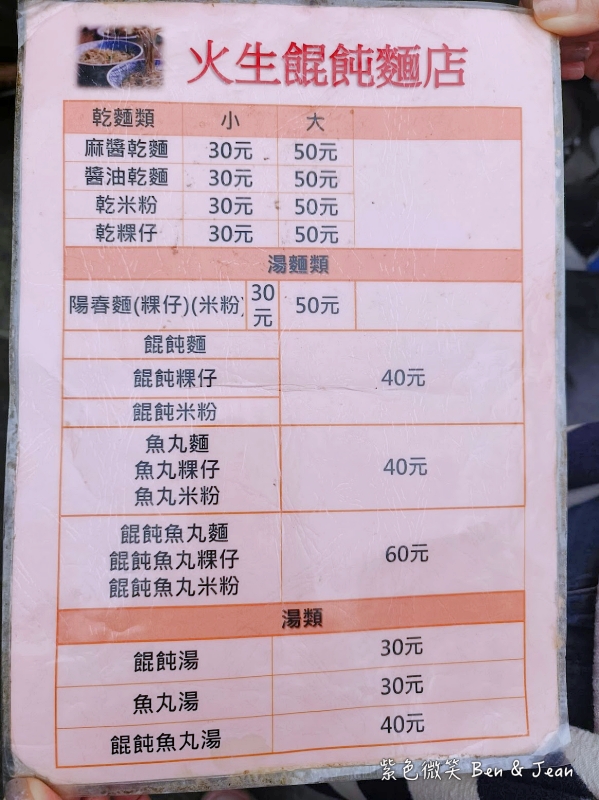 火生餛飩麵店
乾麵類 小 大
麻醬乾麵 30元 50元
醬油乾麵 30元 50元
乾米粉 30元 50元
乾粿仔 30元 50元
湯麵類
陽春麵(粿仔)(米粉) 30元 50元
餛飩麵
餛飩粿仔 40元
餛飩米粉
魚丸麵
魚丸粿仔 40元
魚丸米粉
餛飩魚丸麵
餛飩魚丸粿仔 60元
餛飩魚丸米粉
湯類
餛飩湯 30元
魚丸湯 30元
餛飩魚丸湯 40元
紫色微笑 Ben & Jean